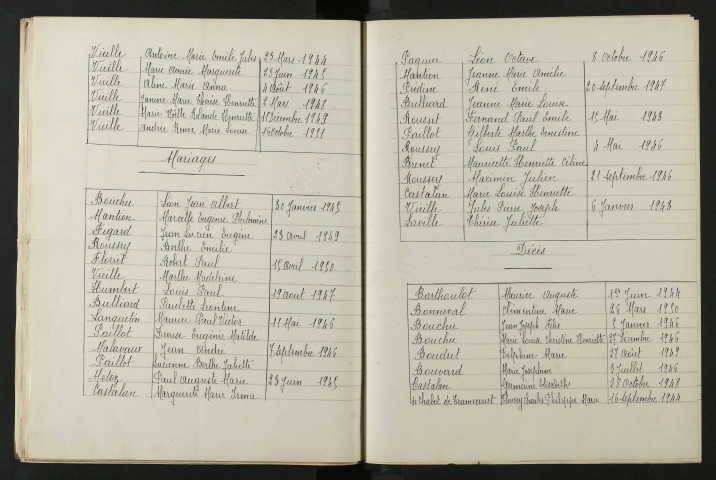 Vieille Antoine Marie Emile Jules 23 Mars 1944
Vieille Marie Aimée Marguerite 23 Juin 1945
Vieille Aline Marie Anna 4 Août 1946
Vieille Janine Marie Thérèse Henriette 2 Mars 1948
Vieille Marie Noëlle Rolande Henriette 11 Décembre 1949
Vieille Andrée Renée Marie Louise 16 Octobre 1951
Mariages
Bouchu Léon Jean Albert 30 Janvier 1945
Mantion Marcelle Eugénie Philomène
Figard Jean Lucien Eugène 23 Avril 1949
Roussey Berthe Emilie
Robert Paul 15 Avril 1950
Vieille Marthe Madeleine
Humbert Louis Paul 19 Août 1947
Bulliard Paulette Léontine
Languetin Maurice Paul Victor 11 Mai 1946
Paillot Denise Eugénie Mathilde
Malavaux Jean André 7 Septembre 1946
Paillot Lucienne Berthe Juliette
Paul Auguste Marie 23 Juin 1945
Castelan Marguerite Marie Irma
Paguier Léon Octave 8 Octobre 1946
Mantion Jeanne Marie Amélie
René Emile 20 Septembre 1947
Bulliard Jeanne Marie Louise
Rousset Fernand Paul Emile 15 Mai 1943
Paillot Gilberte Marthe Ernestine
Roussey Louis Paul 4 Mai 1946
Brenet Mauricette Henriette Céline
Roussey Maximin Julien 21 Septembre 1946
Castalan Marie Louise Henriette
Vieille Jules Pierre Joseph 6 Janvier 1948
Laville Thérèse Juliette
Décès
Barthoulot Maurice Auguste 1er Juin 1944
Bonneval Clémentine Marie 26 Mars 1950
Bouchu Jean Joseph Félix 2 Janvier 1946
Bouchu Marie Louise Christine Henriette 27 Décembre 1946
Boudret Delphine Marie 27 Août 1949
Bouvard Marie Joséphine 3 Juillet 1946
Castalan Germaine Elisabeth 28 Octobre 1948
de Chabot de Tramecourt Thierry Charles Philippe Marie 16 Septembre 1944